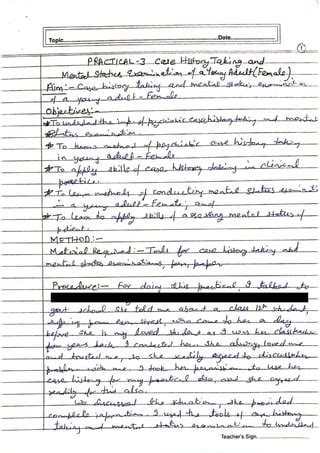 Topic Date
1
PRACTICAL-3 Case History Taking and
Mental Status Examination of a Young Adult (Female).
Aim:- Case history taking and mental status examination
of a young adult - Female
Objectives:-
* To understand the imp. of psychiatric case history taking and mental
status examination.
* To learn method of psychiatric case history taking
in young adult - Female
* To apply skills of case history taking in clinical
practice.
* To learn methods of conducting mental status
in a young adult - Female; and
* To learn to apply skills of assessing mental status of
patient.
METHOD:-
Material Required:- Tools for case history taking and
mental status examinations, pen, paper
Procedure:- For doing this practical, I talked to
govt school. She told me about a class 12th student,
suffering from exam stress, who came to her a day
before. She is my loved student as I was her class teacher
few years back. I contacted her. She always loved me
and trusted me, so she readily agreed to discuss her
problem with me. I took her permission to use her
case history for my practical also, and she agreed
readily for this also.
We discussed the situation, she provided
complete information. I used the tools of case history
taking and mental status examination to understand
Teacher's Sign.